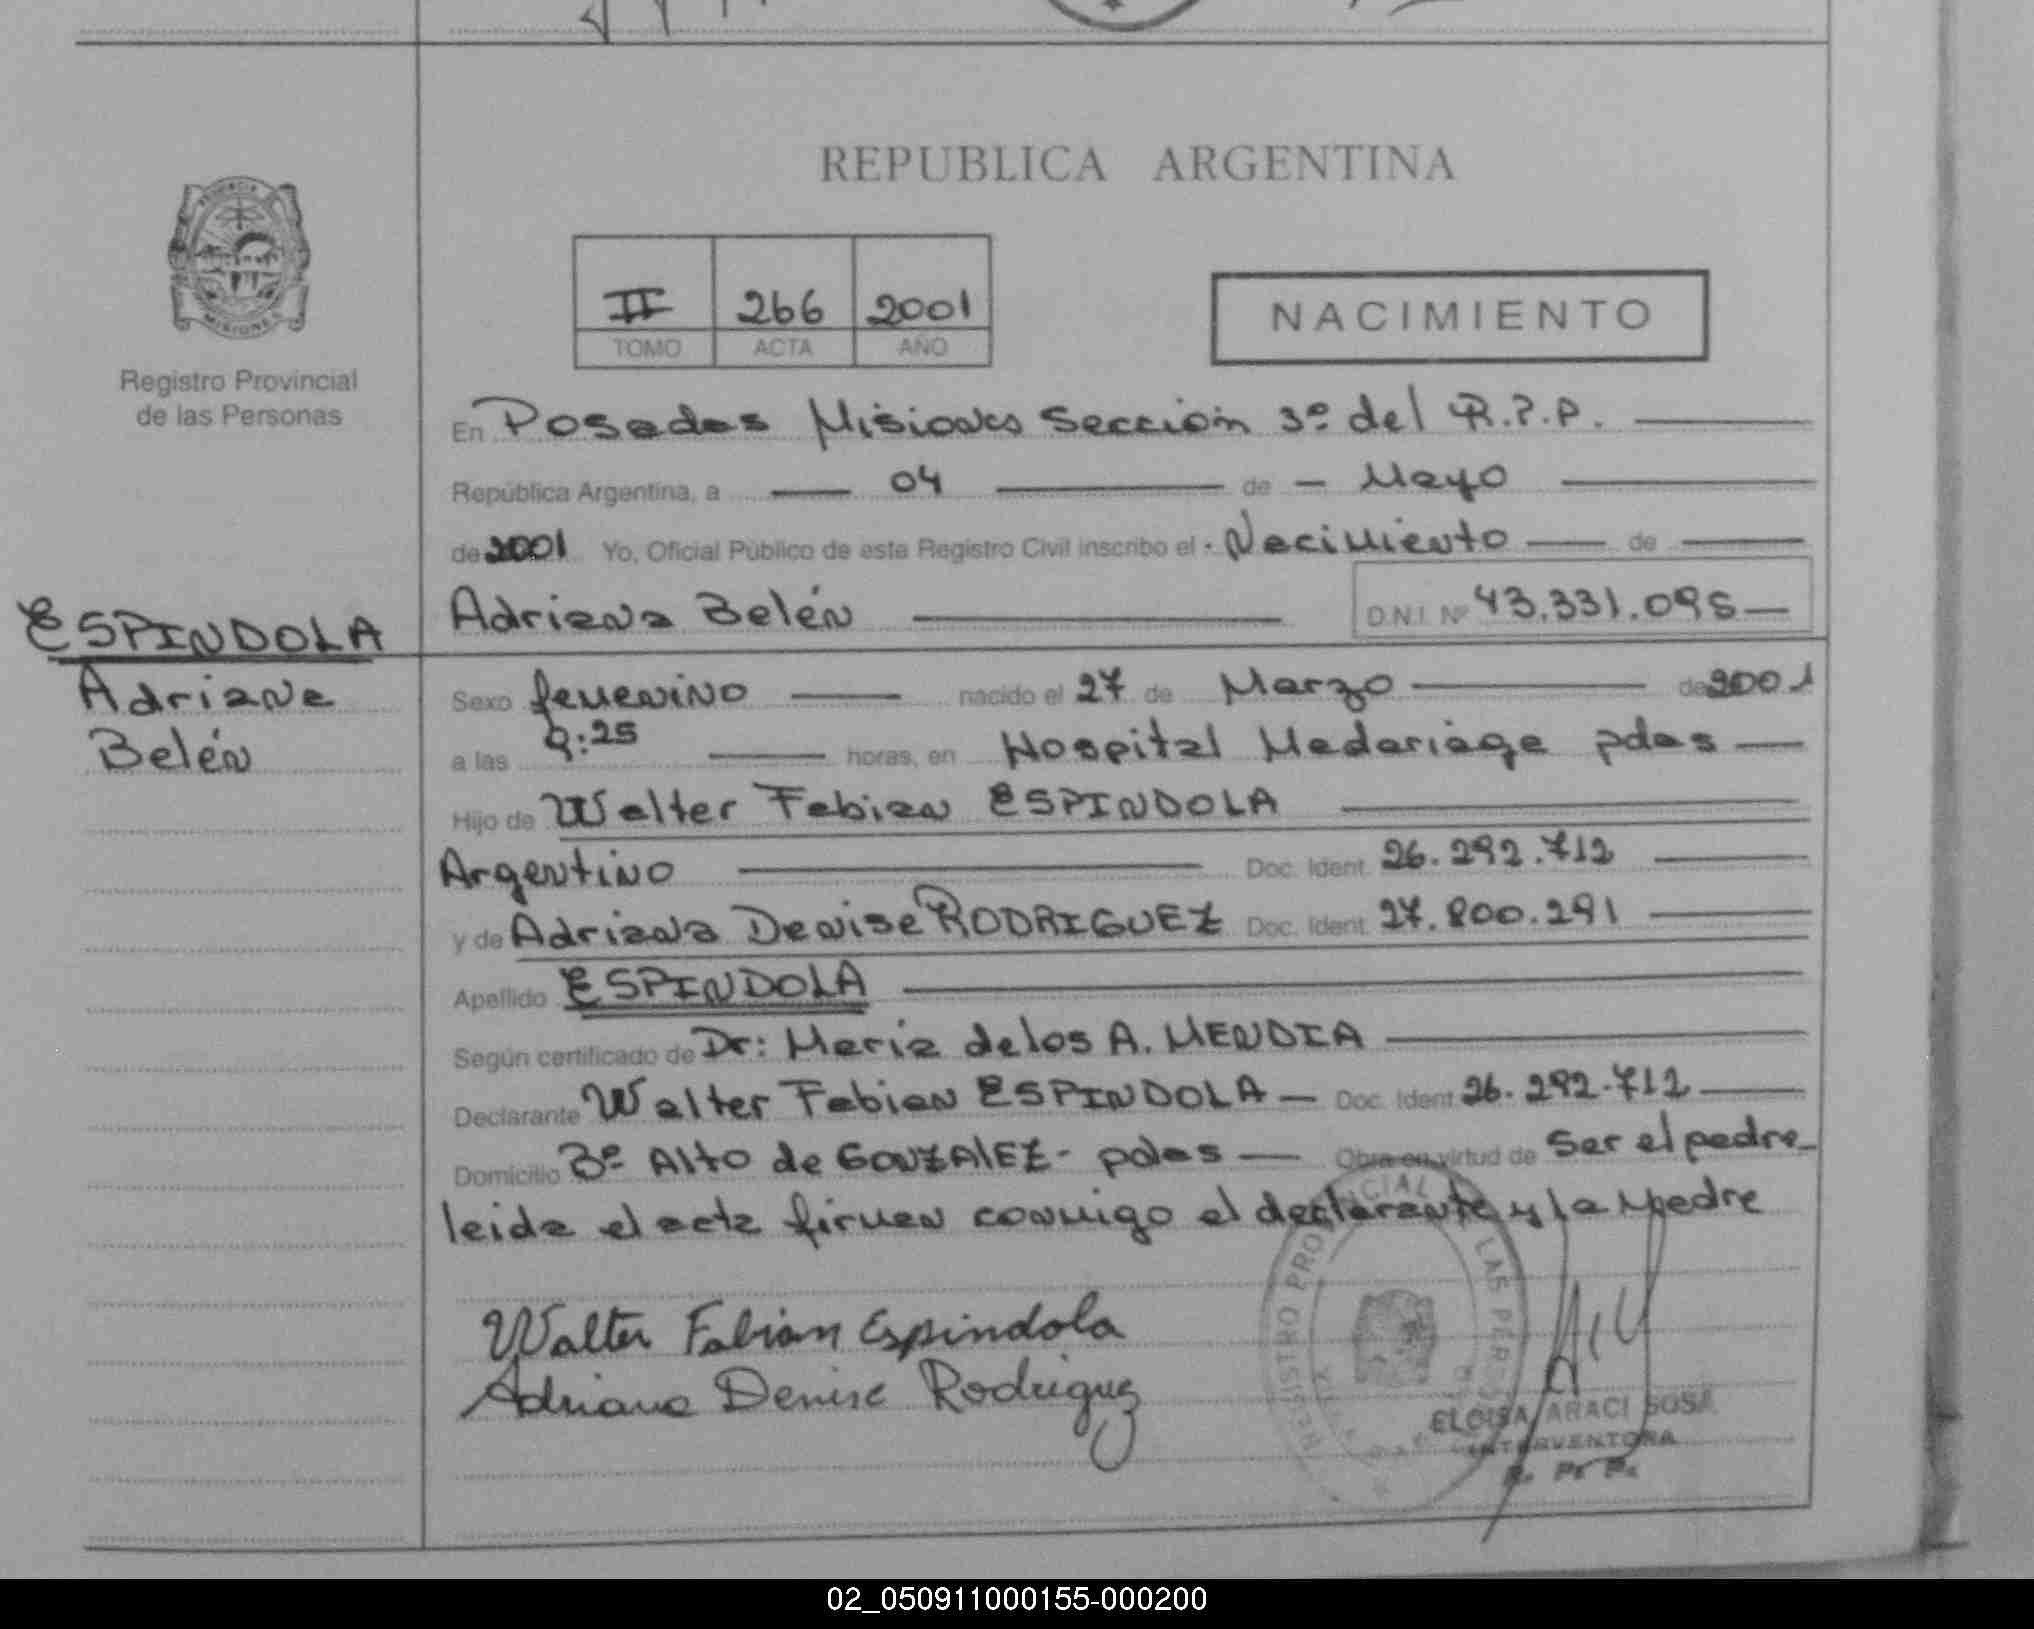 REPUBLICA ARGENTINA
MISIONES
Registro Provincial
de las Personas
II 266 2001
TOMO ACTA AÑO
NACIMIENTO
En Posadas Misiones Sección 3º del R.P.P.
República Argentina, a 04 de Mayo
de 2001 Yo, Oficial Público de este Registro Civil inscribo el Nacimiento de
Adriana Belén D.N.I. Nº 43.331.095
ESPINDOLA
Adriana
Belén
Sexo femenino nacido el 27 de Marzo de 2001
a las 9:25 horas, en Hospital Madariaga pdas
Hijo de Walter Fabian ESPINDOLA
Argentino Doc. Ident. 26.292.712
y de Adriana Denise RODRIGUEZ Doc. Ident. 27.800.291
Apellido ESPINDOLA
Según certificado de Dr: Maria de los A. MENDIA
Declarante Walter Fabian ESPINDOLA Doc. Ident. 26.292.712
Domicilio Bº Alto de GONZALEZ - pdas Obra en virtud de Ser el padre
leida el acta firman conmigo el declarante y la Madre
Walter Fabian Espindola
Adriana Denise Rodriguez
REGISTRO PROVINCIAL LAS PERSONAS
ELOISA ARACI SOSA
INTERVENTORA
R. P. P.
02_050911000155-000200